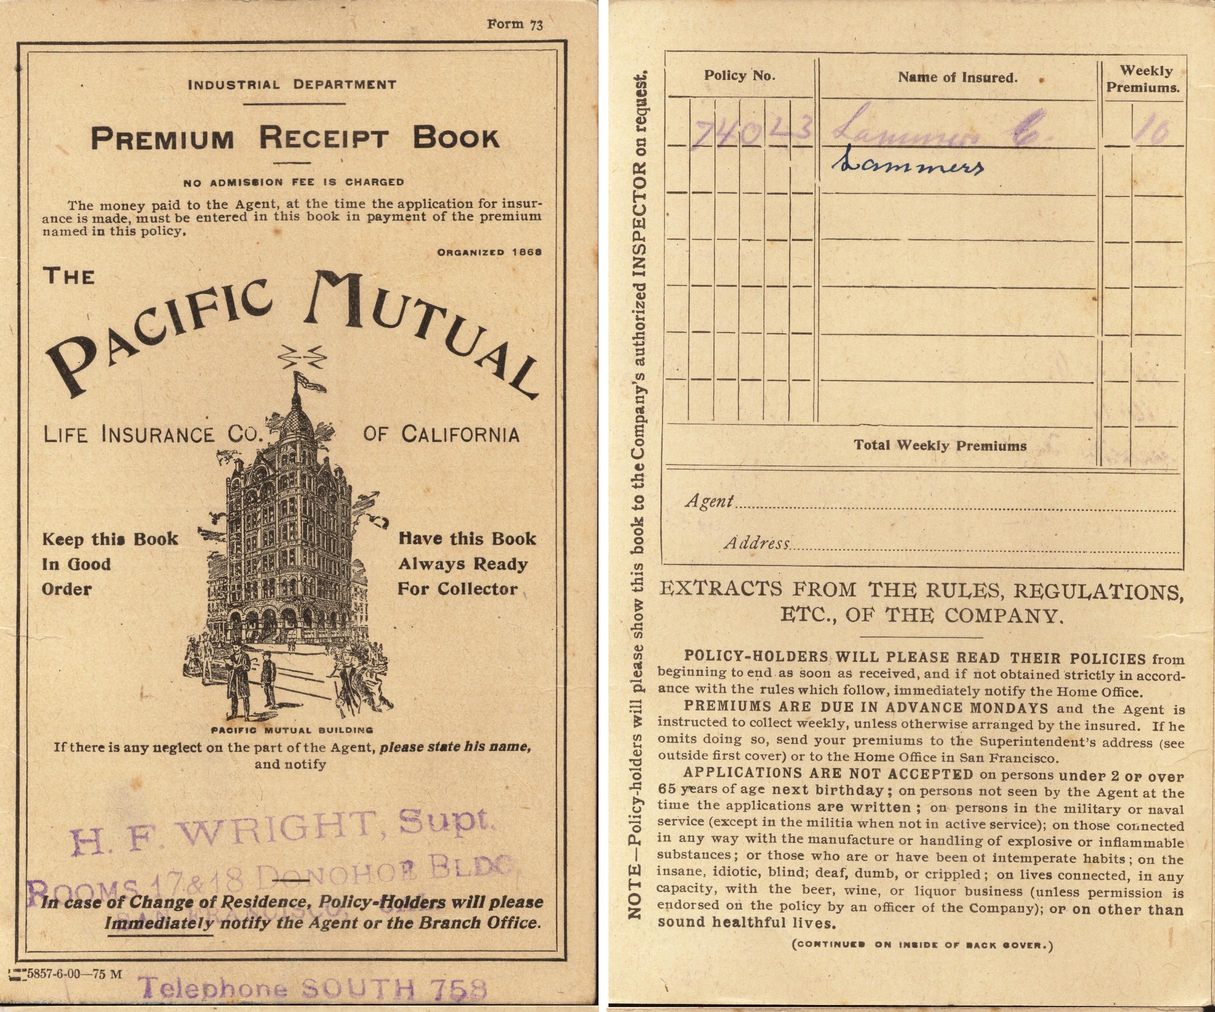 Form 73
INDUSTRIAL DEPARTMENT
PREMIUM RECEIPT BOOK
NO ADMISSION FEE IS CHARGED
The money paid to the Agent, at the time the application for insur-
ance is made, must be entered in this book in payment of the premium
named in this policy.
ORGANIZED 1868
THE
PACIFIC MUTUAL
LIFE INSURANCE CO. OF CALIFORNIA
Keep this Book
In Good
Order
Have this Book
Always Ready
For Collector
PACIFIC MUTUAL BUILDING
If there is any neglect on the part of the Agent, please state his name,
and notify
H. F. WRIGHT, Supt.
ROOMS 17&18 DONOHOE BLDG.
In case of Change of Residence, Policy-Holders will please
Immediately notify the Agent or the Branch Office.
5857-6-00—75 M
Telephone SOUTH 758
NOTE—Policy-holders will please show this book to the Company's authorized INSPECTOR on request.
Policy No. Name of Insured. Weekly Premiums.
74023 Lammers C. 10
Lammers
Total Weekly Premiums
Agent
Address
EXTRACTS FROM THE RULES, REGULATIONS,
ETC., OF THE COMPANY.
POLICY-HOLDERS WILL PLEASE READ THEIR POLICIES from
beginning to end as soon as received, and if not obtained strictly in accord-
ance with the rules which follow, immediately notify the Home Office.
PREMIUMS ARE DUE IN ADVANCE MONDAYS and the Agent is
instructed to collect weekly, unless otherwise arranged by the insured. If he
omits doing so, send your premiums to the Superintendent's address (see
outside first cover) or to the Home Office in San Francisco.
APPLICATIONS ARE NOT ACCEPTED on persons under 2 or over
65 years of age next birthday; on persons not seen by the Agent at the
time the applications are written; on persons in the military or naval
service (except in the militia when not in active service); on those connected
in any way with the manufacture or handling of explosive or inflammable
substances; or those who are or have been of intemperate habits; on the
insane, idiotic, blind; deaf, dumb, or crippled; on lives connected, in any
capacity, with the beer, wine, or liquor business (unless permission is
endorsed on the policy by an officer of the Company); or on other than
sound healthful lives.
(CONTINUED ON INSIDE OF BACK COVER.)